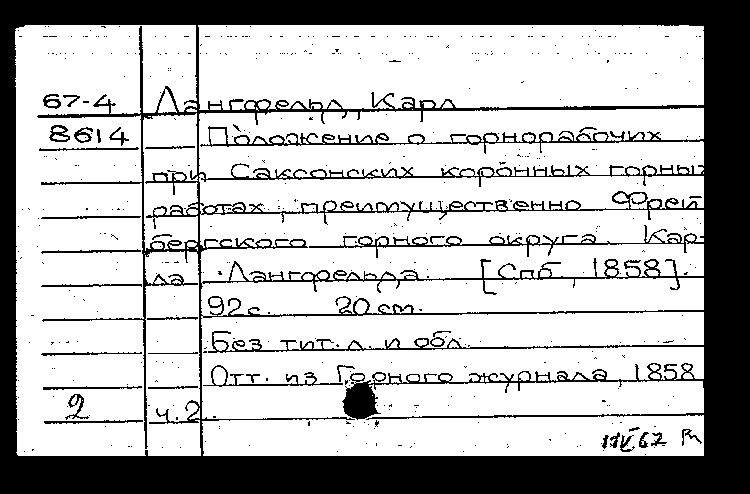 67-4 Лангфельд, Карл
8614 Положение о горнорабочих
при Саксонских коронных горных
работах, преимущественно Фрей
бергского горного округа. Кар-
ла Лангфельда. [Спб., 1858].
92 с. 20 см.
Без тит. л. и обл.
Отт. из Горного журнала, 1858,
2 ч. 2.